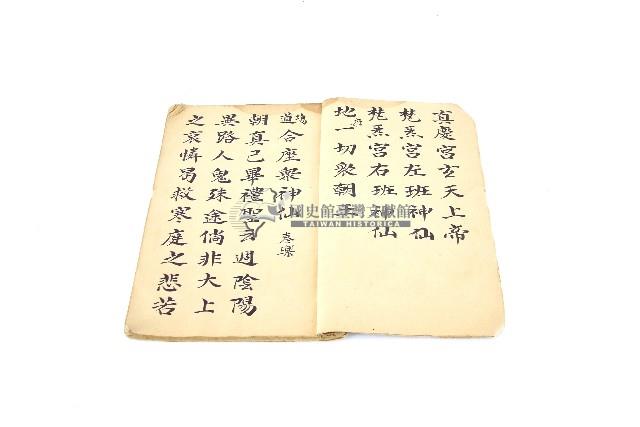 真慶宮玄天上帝
梵炁宮左班神仙
梵炁宮右班神仙
地一切眾朝王
道場合座眾神仙 奏樂
朝真已畢禮聖方週陰陽
異路人鬼殊途倘非大上
之哀憐曷救寒庭之悲苦
國史館臺灣文獻館
TAIWAN HISTORICA